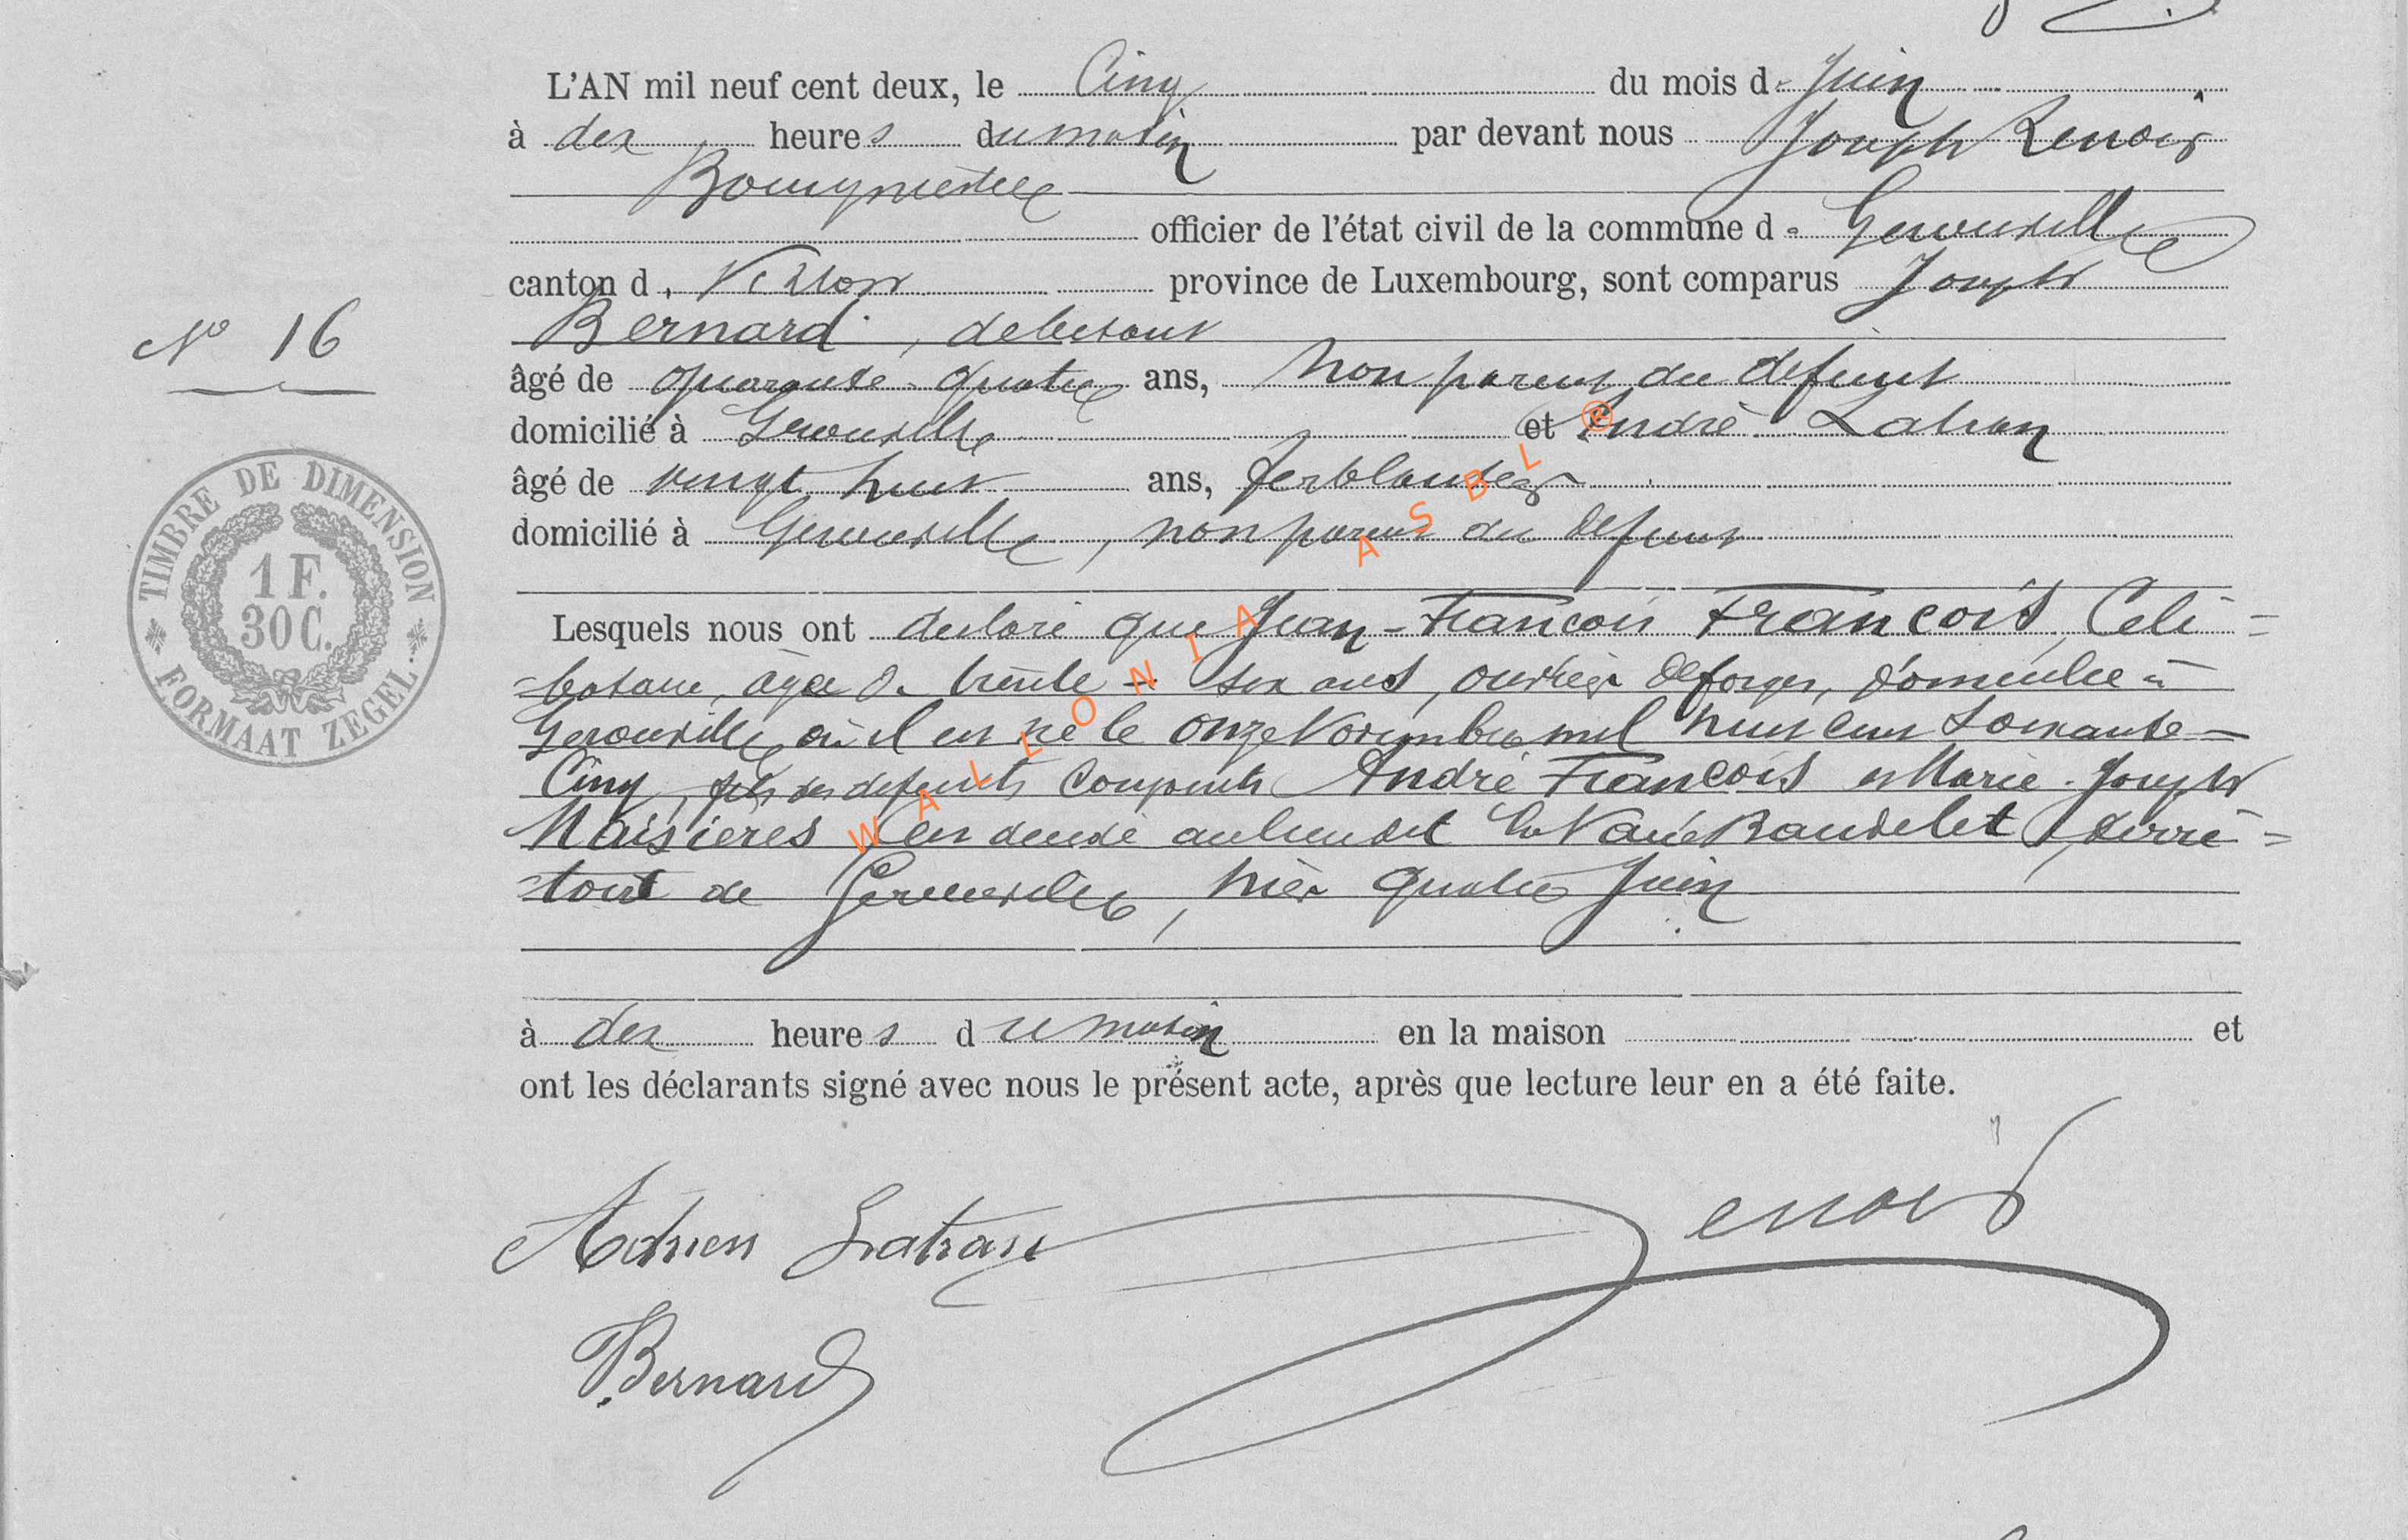 L'AN mil neuf cent deux, le Cinq du mois de Juin
à dix heures du matin par devant nous Joseph Renoir
Bourgmestre
officier de l'état civil de la commune de Gerouville
canton de Virton province de Luxembourg, sont comparus Joseph
Bernard, debitant
N° 16
âgé de quarante-quatre ans, non parent du defunt
domicilié à Gerouville et André Latran
âgé de vingt huit ans, ferblantier
domicilié à Gerouville, non parent du defunt
TIMBRE DE DIMENSION
1 F.
30 C.
FORMAAT ZEGEL.
Lesquels nous ont declaré que Jean-Francois Francois, Celi=
=bataire, âgé de trente-six ans, ouvrier de forges, domicilié à
Gerouville où il est né le onze Novembre mil huit cent soixante-
Cinq, fils des defunts conjoints André Francois et Marie-Joseph
Maisieres est decedé au lieu dit la Baudelet, terri=
=toire de Gerouville, hier quatre Juin
à dix heures du matin en la maison et
ont les déclarants signé avec nous le présent acte, après que lecture leur en a été faite.
Adrien Latran
Bernard
WALLONIA ASBL ®